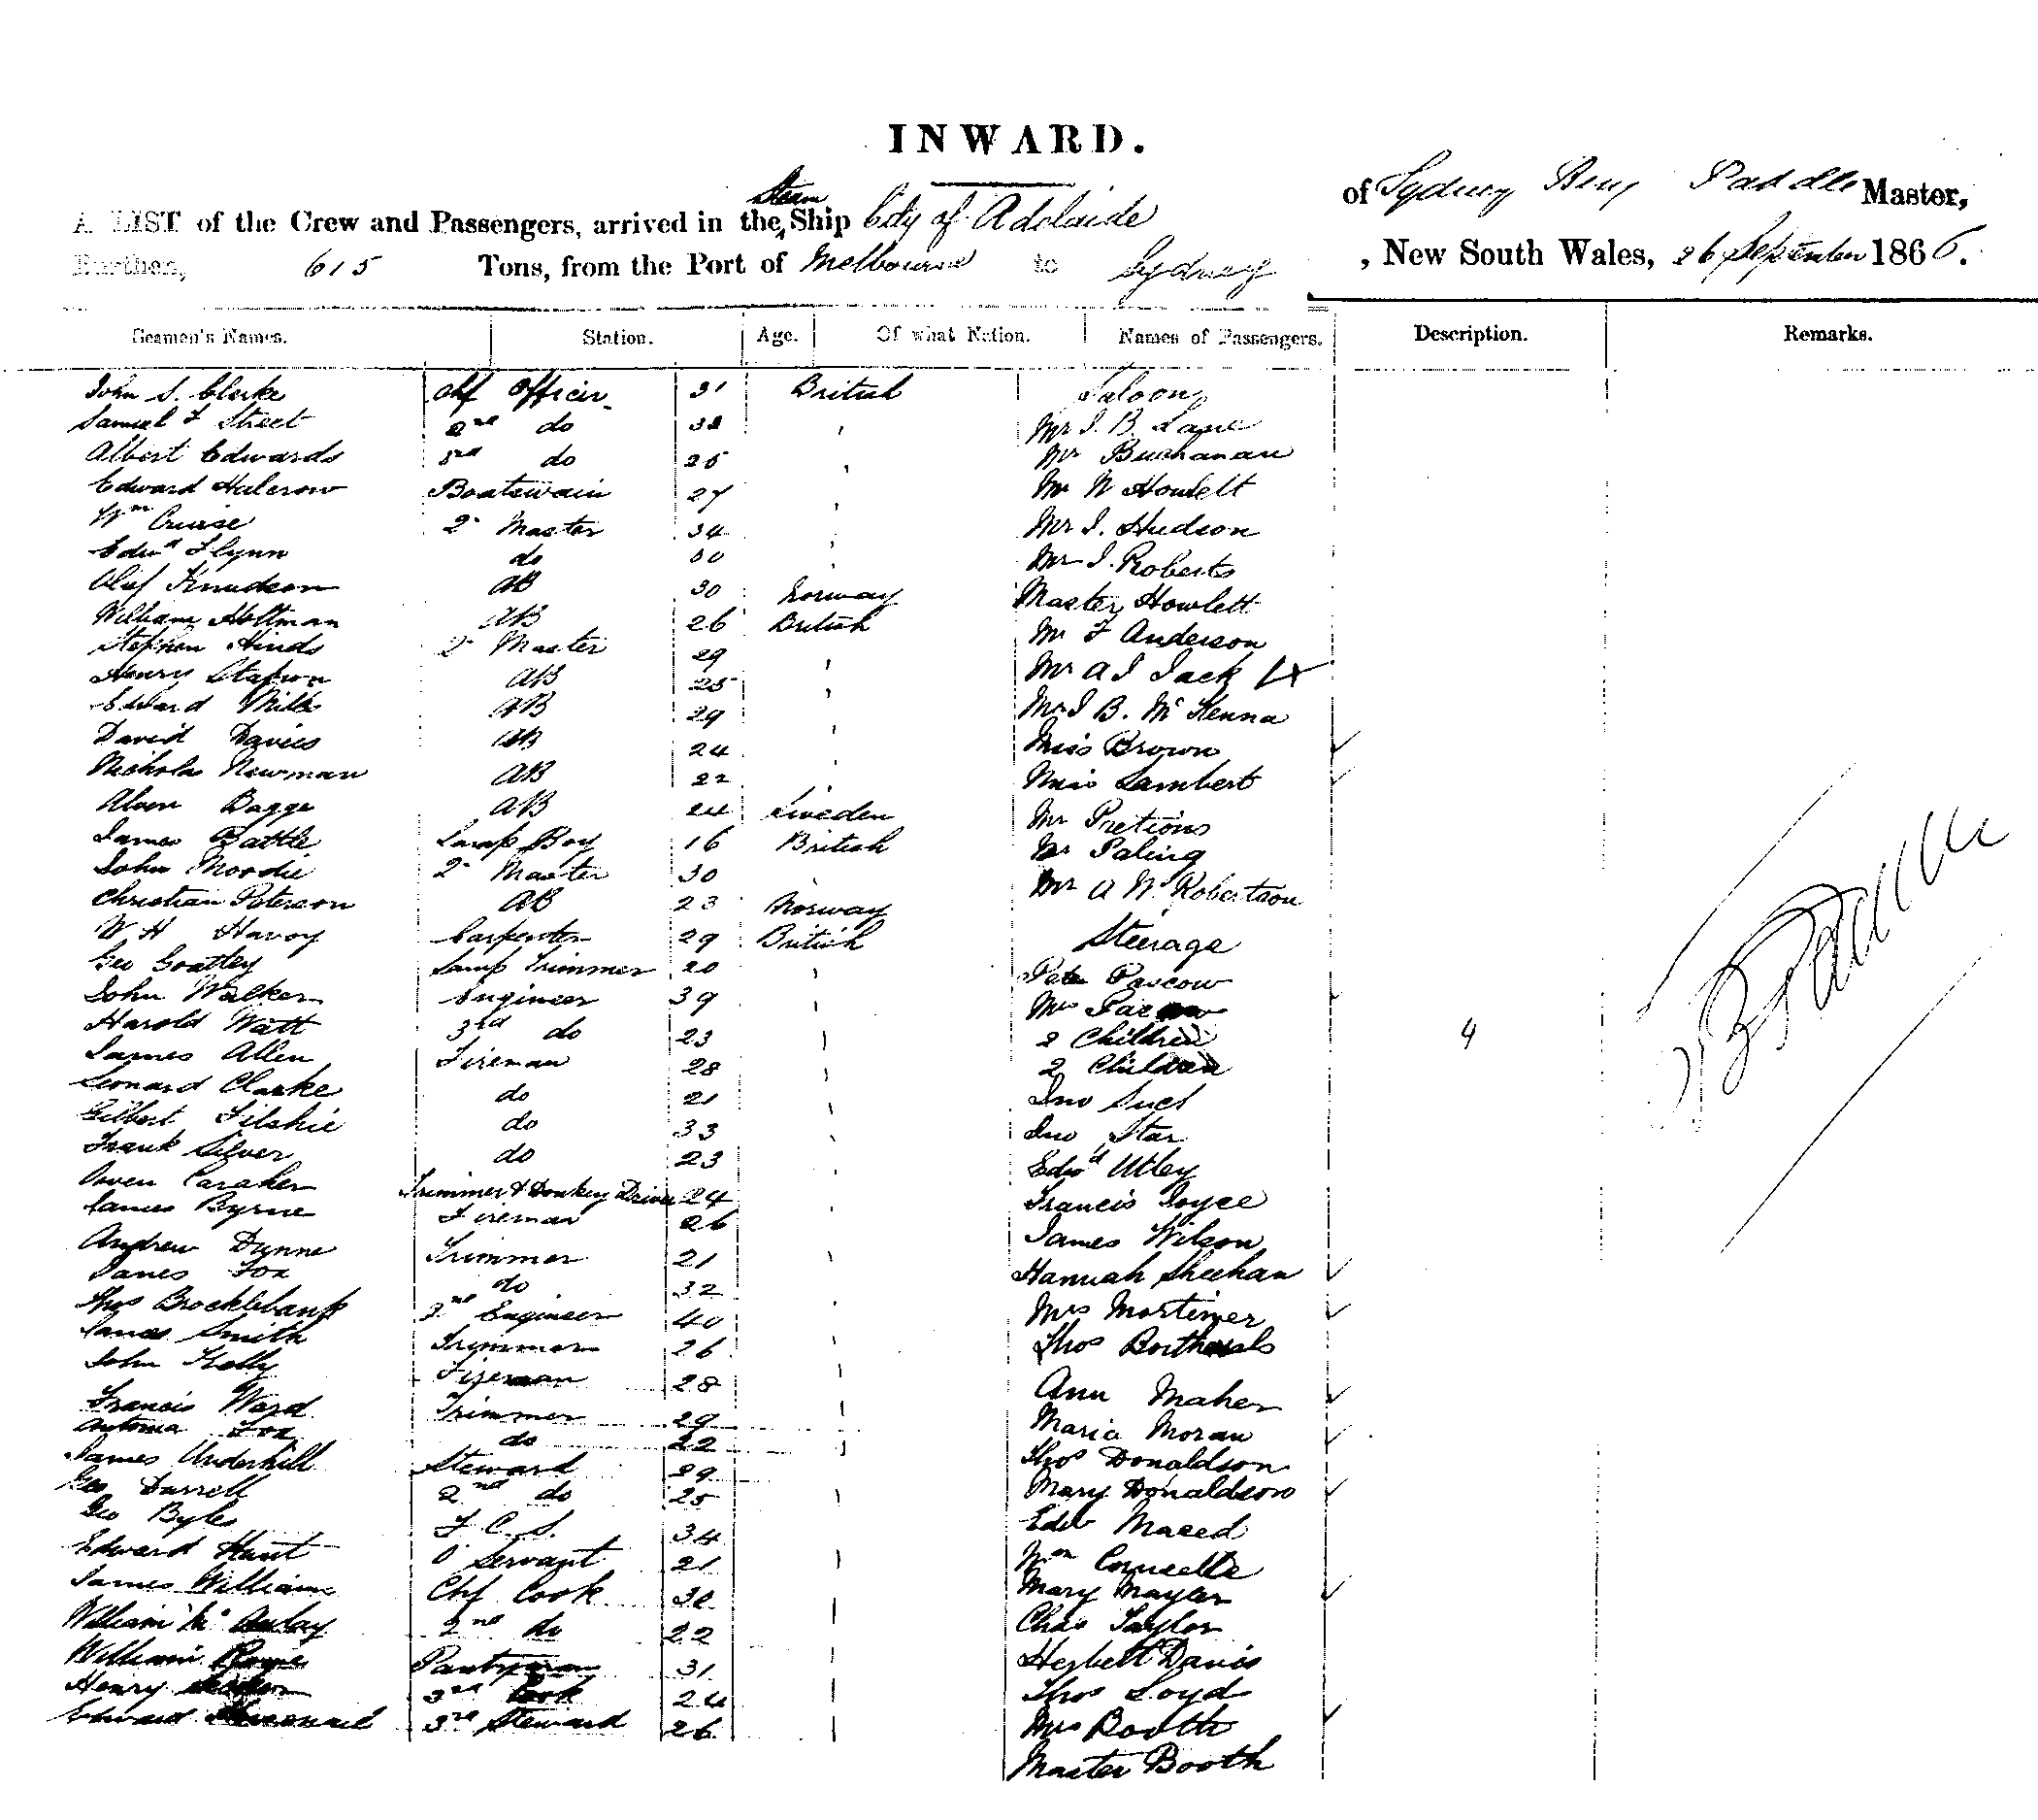 INWARD.
A LIST of the Crew and Passengers, arrived in the Steam Ship City of Adelaide of Sydney Heny Paddle Master,
Burthen, 615 Tons, from the Port of Melbourne to Sydney, New South Wales, 26 September 1866.
Seamen's Names. Station. Age. Of what Nation. Names of Passengers. Description. Remarks.
John S. Clerke Chf Officer 31 British Saloon
Samuel F Street 2nd do 32 Mr J. B. Lane
Albert Edwards 3rd do 25 Mr Buchanan
Edward Halcrow Boatswain 27 Mr W Howlett
Wm Cruise 2 Master 34 Mr J. Hudson
Edwd Flynn do 30 Mr J. Roberts
Olaf Knudson AB 30 Norway Master Howlett
William Holtman AB 26 British Mr F Anderson
Stephen Hinds 2 Master 29 Mr A J Jack
Henry AB 25 Mr J B. McKenna
Edward Mills AB 29 Miss Brown
David Davies AB 24 Miss Lambert
Nicholas Newman AB 22 Mr
Alwen Bagge AB 24 Sweden Mr Paling
James Battle Lamp Boy 16 British Mr A W Robertson
John Moodie 2 Master 30
Christian Peterson AB 23 Norway Steerage
W H Havoy Carpenter 29 British
Geo Goatley Lamp Trimmer 20 Pascow
John Walker Engineer 39 Mrs
Harold Watt 3rd do 23 2 Children 4
James Allen Fireman 28 2 Children
Leonard Clarke do 21 Jno
Gilbert Filshie do 33 Jno Star
Frank Silver do 23 Edwd Utley
Owen Caraher Trimmer & Donkey Driver 24 Francis Joyce
James Byrne Fireman 26 James Wilson
Andrew Dunne Trimmer 21 Hannah Sheehan
James Fox do 32 Mrs Mortimer
Thos Brocklebank 2nd Engineer 40 Thos
James Smith Trimmer 26
John Kelly Fireman 28 Ann Maher
Francis Ward Trimmer 29 Maria Moran
Fox do 22 Thos Donaldson
James Underhill Steward 29 Mary Donaldson
Geo Darrell 2nd do 25
Geo Byles F. C. S. 34 Wm
Edward Hunt O Servant 21 Mary Mayler
James Williams Chf Cook 32 Chas Taylor
William 2nd do 22 Herbert Davis
William Pantryman 31 Thos Loyd
Henry 3rd Cook 24 Mrs Booth
Edward 3rd Steward 26 Master Booth